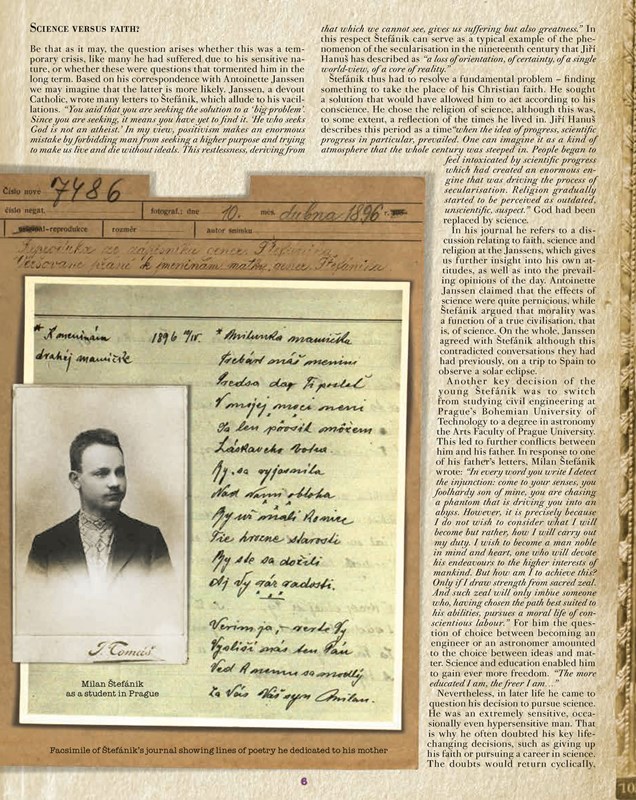 SCIENCE VERSUS FAITH?
Be that as it may, the question arises whether this was a tem-
porary crisis, like many he had suffered, due to his sensitive na-
ture, or whether these were questions that tormented him in the
long term. Based on his correspondence with Antoinette Janssen
we may imagine that the latter is more likely. Janssen, a devout
Catholic, wrote many letters to Štefánik, which allude to his vacil-
lations. “You said that you are seeking the solution to a ‘big problem’.
Since you are seeking, it means you have yet to find it. ‘He who seeks
God is not an atheist.’ In my view, positivism makes an enormous
mistake by forbidding man from seeking a higher purpose and trying
to make us live and die without ideals. This restlessness, deriving from
that which we cannot see, gives us suffering but also greatness.” In
this respect Štefánik can serve as a typical example of the phe-
nomenon of the secularisation in the nineteenth century that Jiří
Hanuš has described as “a loss of orientation, of certainty, of a single
world-view, of a core of reality.”
Štefánik thus had to resolve a fundamental problem – finding
something to take the place of his Christian faith. He sought
a solution that would have allowed him to act according to his
conscience. He chose the religion of science, although this was,
to some extent, a reflection of the times he lived in. Jiří Hanuš
describes this period as a time“when the idea of progress, scientific
progress in particular, prevailed. One can imagine it as a kind of
atmosphere that the whole century was steeped in. People began to
feel intoxicated by scientific progress
which had created an enormous en-
gine that was driving the process of
secularisation. Religion gradually
started to be perceived as outdated,
unscientific, suspect.” God had been
replaced by science.
In his journal he refers to a dis-
cussion relating to faith, science and
religion at the Janssens, which gives
us further insight into his own at-
titudes, as well as into the prevail-
ing opinions of the day. Antoinette
Janssen claimed that the effects of
science were quite pernicious, while
Štefánik argued that morality was
a function of a true civilisation, that
is, of science. On the whole, Janssen
agreed with Štefánik although this
contradicted conversations they had
had previously, on a trip to Spain to
observe a solar eclipse.
Another key decision of the
young Štefánik was to switch
from studying civil engineering at
Prague’s Bohemian University of
Technology to a degree in astronomy
the Arts Faculty of Prague University.
This led to further conflicts between
him and his father. In response to one
of his father’s letters, Milan Štefánik
wrote: “In every word you write I detect
the injunction: come to your senses, you
foolhardy son of mine, you are chasing
a phantom that is driving you into an
abyss. However, it is precisely because
I do not wish to consider what I will
become but rather, how I will carry out
my duty. I wish to become a man noble
in mind and heart, one who will devote
his endeavours to the higher interests of
mankind. But how am I to achieve this?
Only if I draw strength from sacred zeal.
And such zeal will only imbue someone
who, having chosen the path best suited to
his abilities, pursues a moral life of con-
scientious labour.” For him the ques-
tion of choice between becoming an
engineer or an astronomer amounted
to the choice between ideas and mat-
ter. Science and education enabled him
to gain ever more freedom. “The more
educated I am, the freer I am…”
Nevertheless, in later life he came to
question his decision to pursue science.
He was an extremely sensitive, occa-
sionally even hypersensitive man. That
is why he often doubted his key life-
changing decisions, such as giving up
his faith or pursuing a career in science.
The doubts would return cyclically.
Číslo nové 7486
číslo negat. fotograf.: dne 10. měs. dubna 1896 r.
-reprodukce rozměr autor snímku
* K meninám 1896
drahej mamičke
* Milunká mamička
Nad vami obloha
By ste sa dožili
Aj Vy radosti.
Za Vás Váš syn Milan.
J. Tomáš
Milan Štefánik
as a student in Prague
Facsimile of Štefánik’s journal showing lines of poetry he dedicated to his mother
6
10